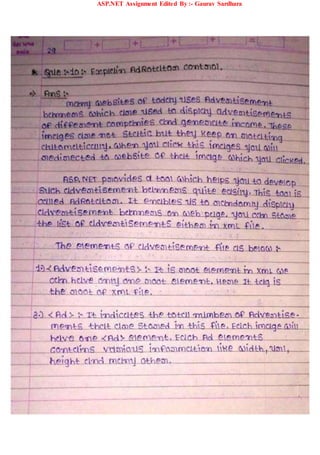 ASP.NET Assignment Edited By :- Gaurav Sardhara
29
Que :- 10 :- Explain AdRotator control.
Ans :-
many websites of today uses Advertisement
banners which are used to display advertisements
of different companies and generate income. These
images are not static but they keep on rotating
automatically. When you click this images you will
redirected to website of that image which you clicked.
ASP.NET provides a tool which helps you to develop
such advertisement banners quite easily. This tool is
called AdRotator. It enables us to randomly display
advertisement banners on web page. you can store
the list of advertisements either in xml file.
The elements of advertisement file as below :-
1) <Advertisements> :- It is root element in xml we
can have only one root element. Here It tag is
the root of xml file.
2) <Ad> :- It indicates the total number of Advertise-
ments that are stored in this file. Each image will
have one <Ad> element. Each Ad elements
contains various information like width, url,
height and many other.